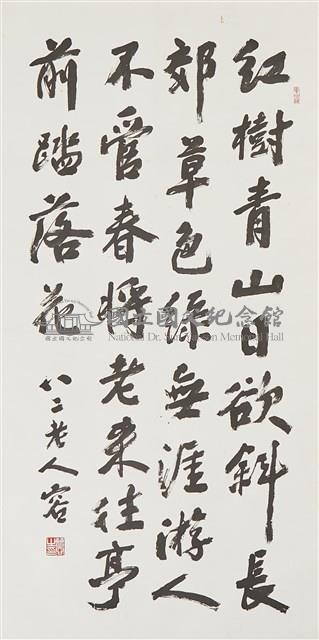 紅樹青山日欲斜長
郊草色綠無涯游人
不管春將老來往亭
前踏落花
八二老人容
國立國父紀念館
National Dr. Sun Yat-sen Memorial Hall